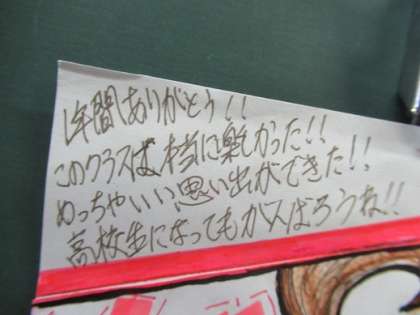 1年間ありがとう!!
このクラスは本当に楽しかった!!
めっちゃいい思い出ができた!!
高校生になってもがんばろうね!!